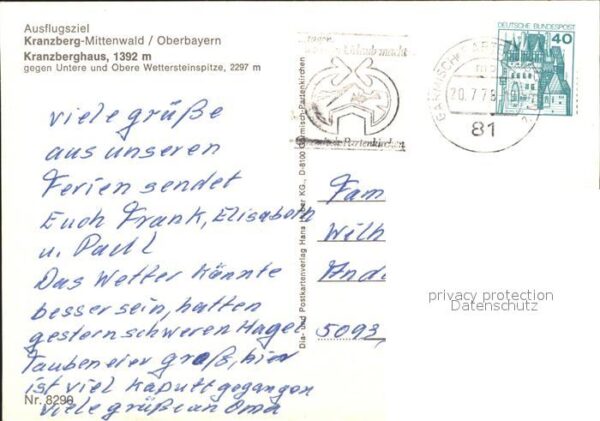 Ausflugsziel
Kranzberg-Mittenwald / Oberbayern
Kranzberghaus, 1392 m
gegen Untere und Obere Wettersteinspitze, 2297 m
viele grüße
aus unseren
Ferien sendet
Euch Frank, Elisabeth
u. Paul
Das Wetter könnte
besser sein, hatten
gestern schweren Hagel
Taubeneier groß, hier
ist viel kaputt gegangen
viele grüße an Oma
Nr. 8290
Dia- und Postkartenverlag Hans Huber KG., D-8100 Garmisch-Partenkirchen
Urlaub macht
Garmisch-Partenkirchen
GARMISCH-PARTEN
20.7.78
81
DEUTSCHE BUNDESPOST
40
Fam
Wilh
And
5093,
privacy protection
Datenschutz